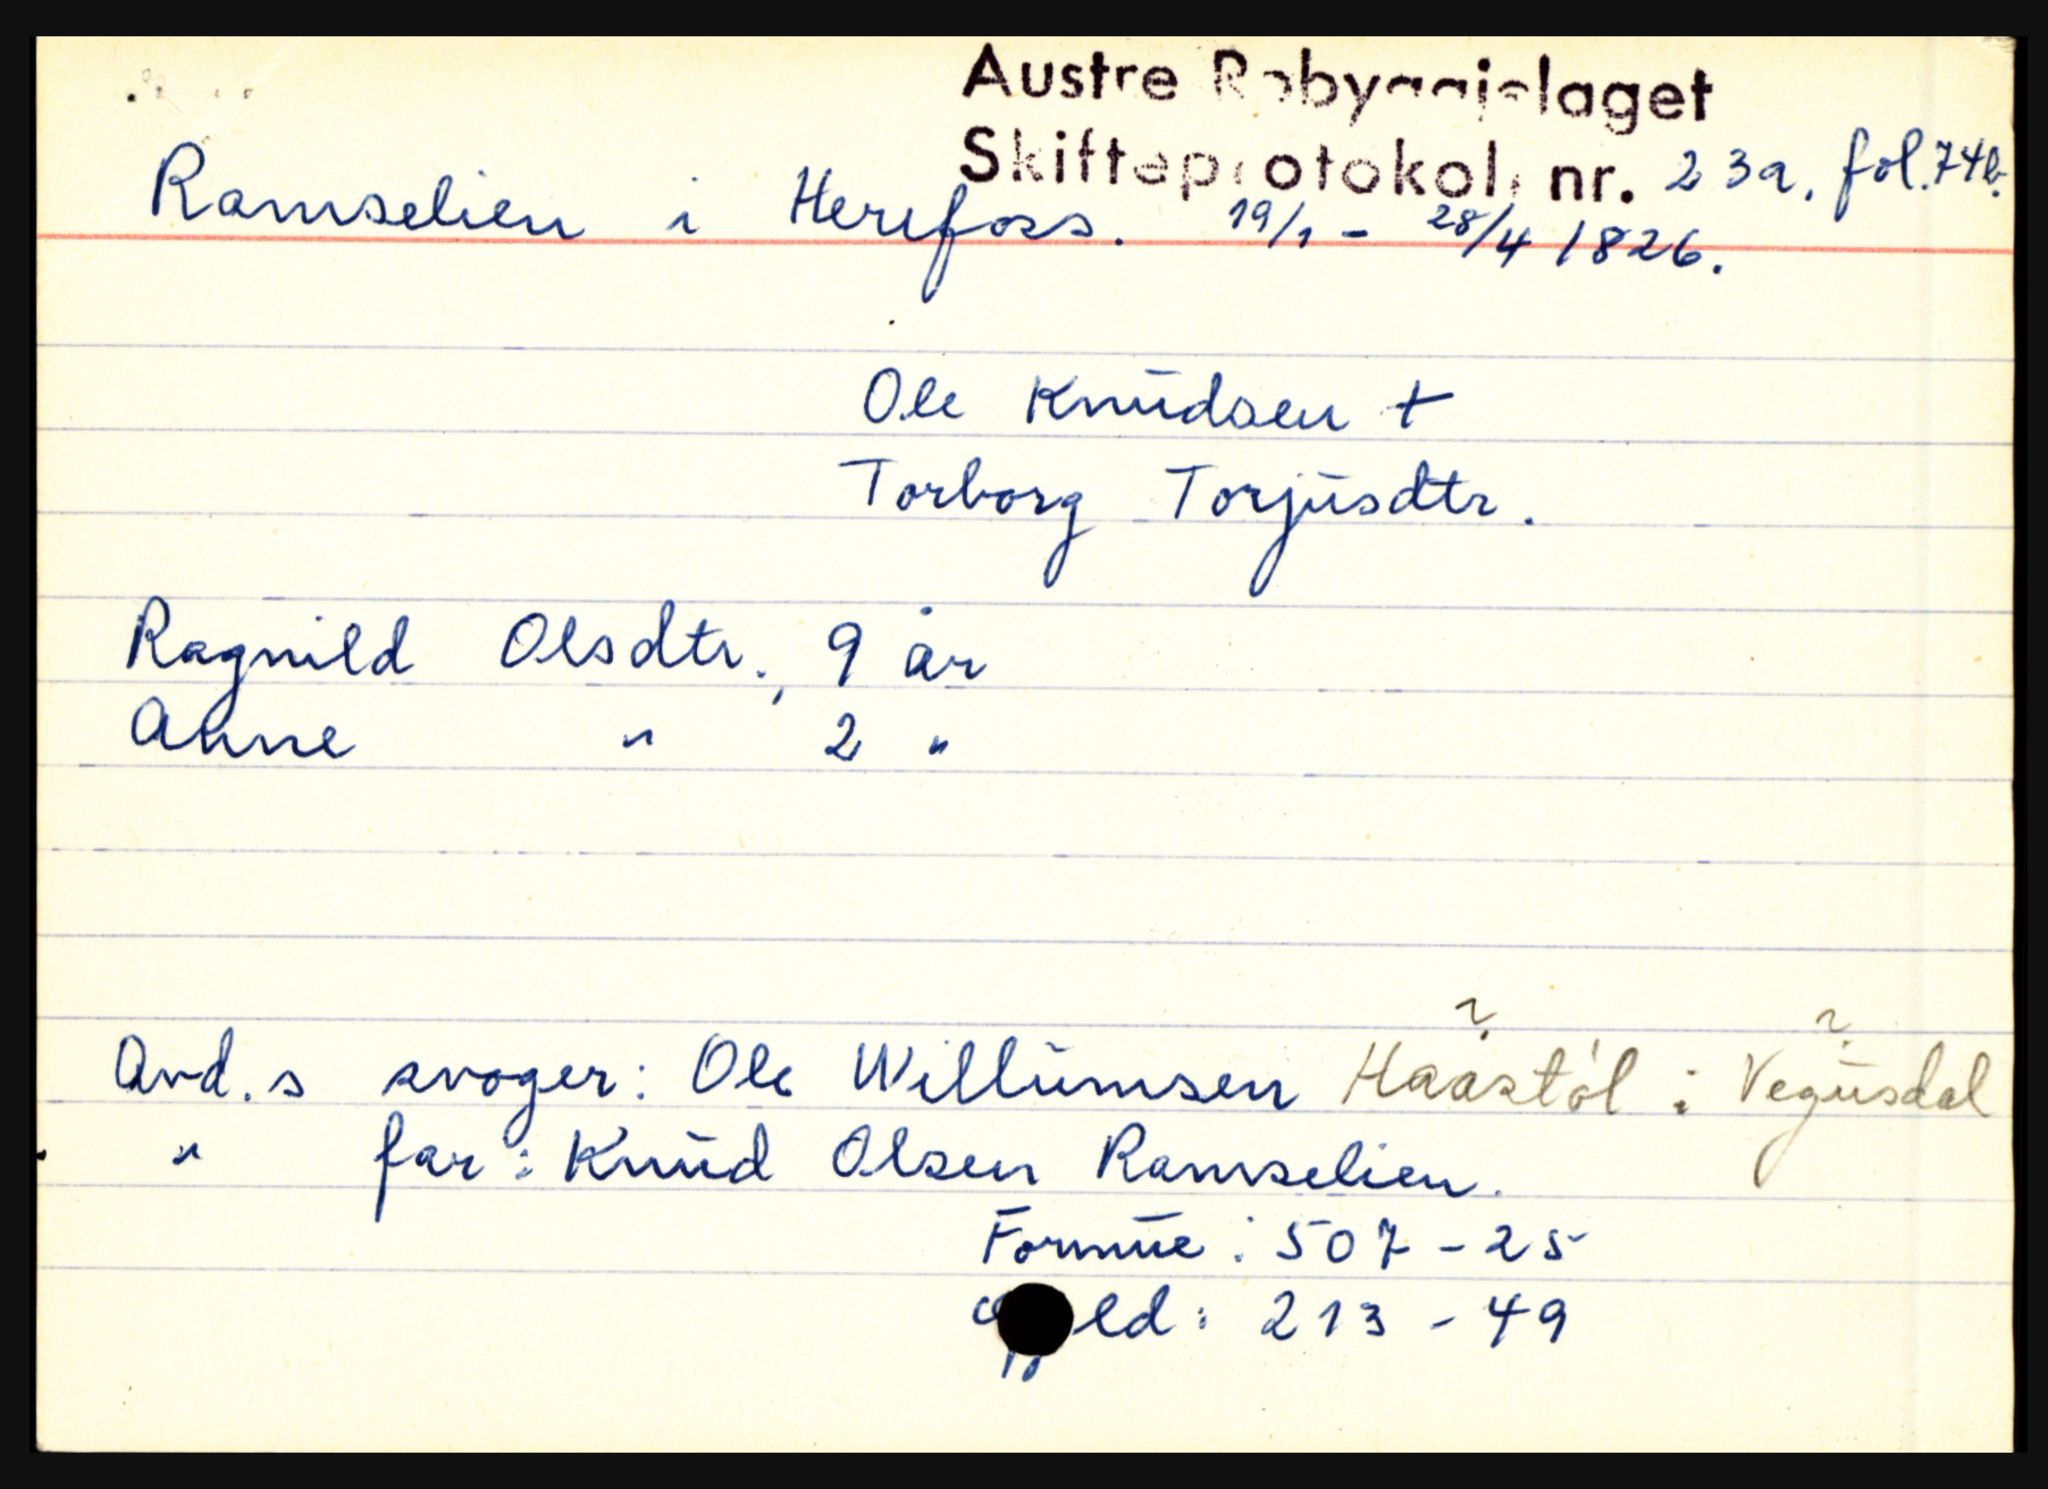 Austre Robyggjelaget
Skifteprotokoll nr. 23a, fol. 74b.
Ramselien i Herefoss. 19/1 - 28/4 1826.
Ole Knudsen +
Torborg Torjusdtr.
Ragnild Olsdtr., 9 år
Anne " 2 "
Avd.s svoger: Ole Willumsen Haastøl i Vegusdal
? ?
" far: Knud Olsen Ramselien.
Formue: 507 - 25
Gjeld: 213 - 49